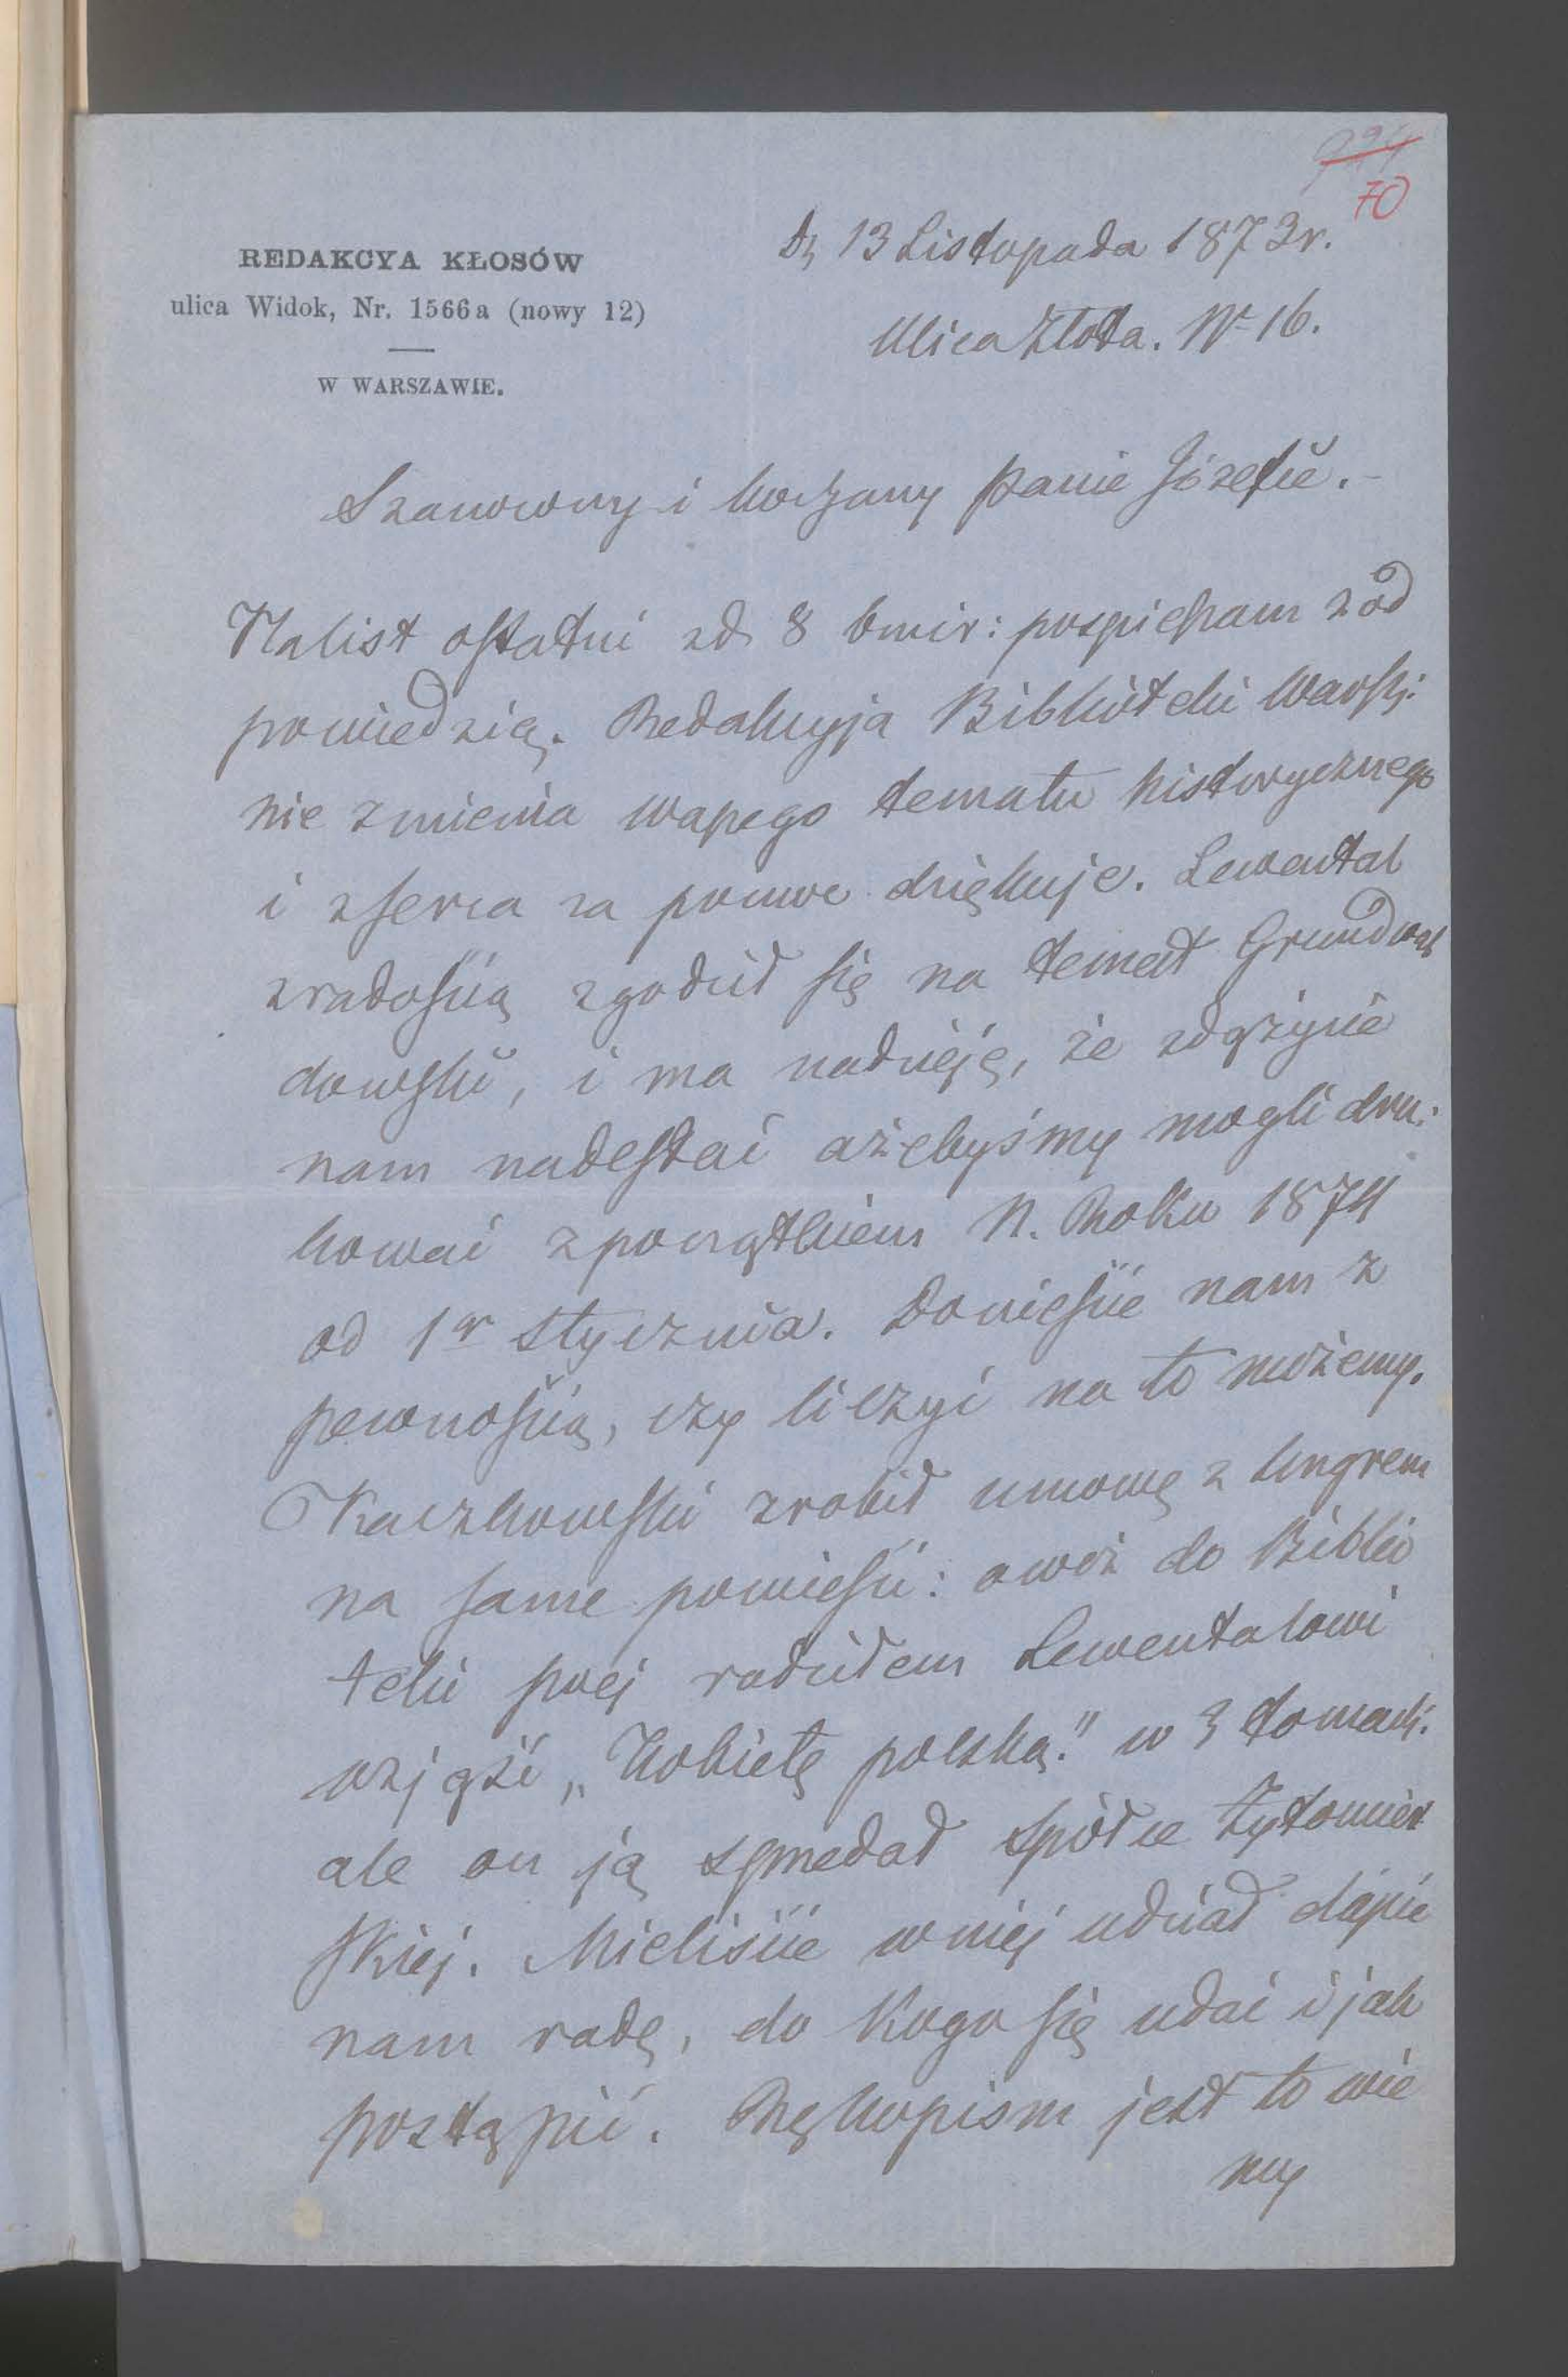 70
REDAKCYA KŁOSÓW
ulica Widok, Nr. 1566a (nowy 12)
W WARSZAWIE.
D, 13 Listopada 1873r.
Ulica Złota. No 16.
Szanowny i kochany Panie Józefie.-
Na list ostatni zd. 8 bmir: pospieszam z od
powiedzią. Redakcyja Biblioteki Warsz:
nie zmienia waszego tematu historycznego
i z serca za pomoc dziękuje. Lewental
z radością zgodził się na temat Grunwal
dowski, i ma nadzieję, że zdążycie
nam nadesłać ażebyśmy mogli dru:
kować z początkiem N. Roku 1874
od 1go stycznia. Donieście nam z
pewnością, czy liczyć na to możemy.
Kaczkowski zrobił umowę z Ungrem
na same powieści: owóż do Biblio
teki swej radziłem Lewentalowi
wziąść „Kobietę polską." w 3 tomach.
ale on ją sprzedał spółce Żytomier
skiej. Mieliście w niej udział dajcie
nam radę, do kogo się udać i jak
postąpić. Rękopism jest to wie
my